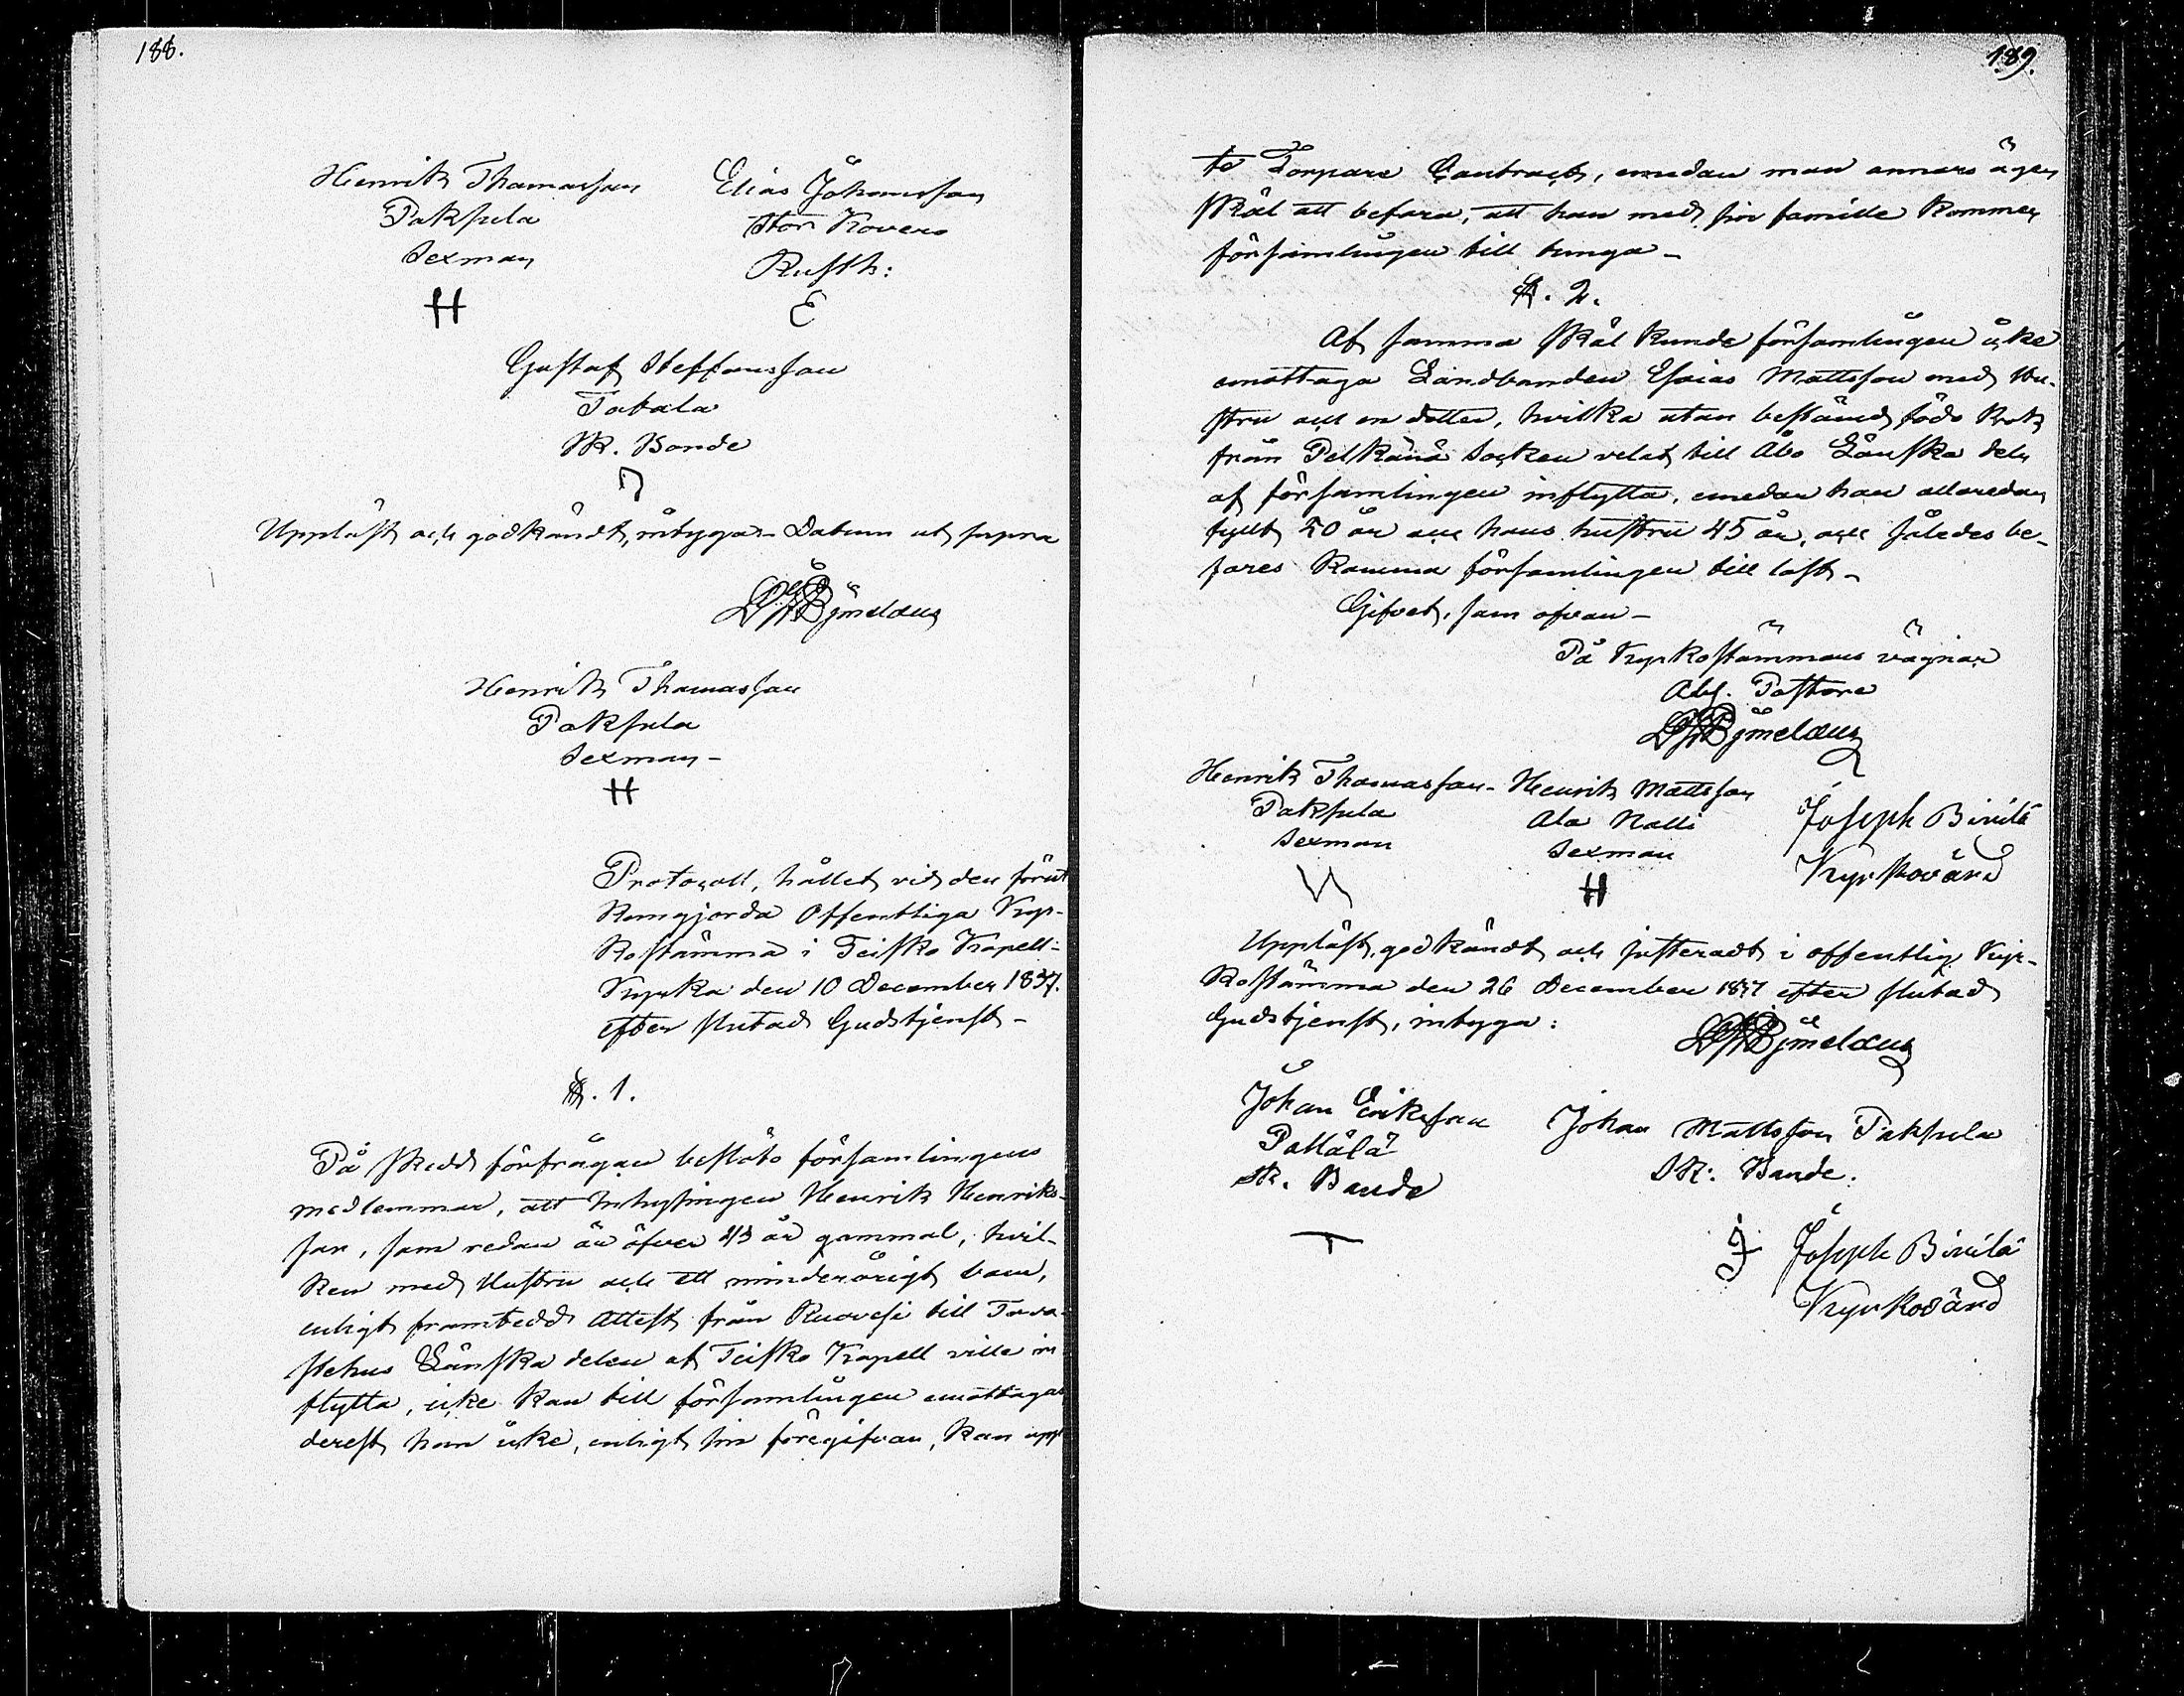 188.
Henrik Thomasson
Pakkula
Sexman
H
Elias Johansson
Stor Kovero
Rusth:
E
Gustaf Steffansson
Takala
Sk. Bonde
Uppläst och godkändt, intygar. Datum ut supra
Henrik Thomasson
Pakkula
Sexman -
H
Protocoll, hållet vid den förut
kungjorda Offentliga Kyr-
kostämma i Teisko Kapell-
Kyrka den 10 December 1837.
efter slutad Gudstjenst -
§. 1.
På skedd förfrågan beslöto församlingens
medlemmar, att Inhysingen Henrik Henriks-
son, som redan är öfver 43 år gammal, hvil-
ken med Hustru och ett minderårigt barn,
enligt framtedd Attest från Ruovesi till Tava-
stehus Länska delen af Teisko Kapell ville in
flytta, icke kan till församlingen emottagas
derest han icke, enligt sin föregifvan, kan upp
189.
te Torpare Contract, emedan man annars äger
skäl att befara, att han med sin famille kommer
församlingen till tunga -
§. 2.
Af samma skäl kunde församlingen icke
emottaga Landbonden Esaias Mattsson med Hu-
stru och en dotter, hvilka utan bestämd föde krok
från Pelkänä Socken velat till Åbo Länska dele
af församlingen inflytta, emedan han allaredan
fyllt 50 år och hans hustru 45 år, och således be-
fares komma församlingen till last -
Gifvet, som ofvan -
På Kyrkostämmans vägnar
Adj. Pastore
Henrik Thomasson -
Pakkula
Sexman
Henrik Mattsson
Ala Nalli
Sexman
H
Joseph Birilä
Kyrkovärd
Uppläst, godkändt och justeradt i offentlig Kyr-
kostämma den 26 December 1837 efter slutad
Gudstjenst, intyga:
Johan Eriksson
Pallälä
Sk. Bonde
Johan Mattsson Pakkula
Sk: Bonde.
Joseph Birilä
Kyrkovärd